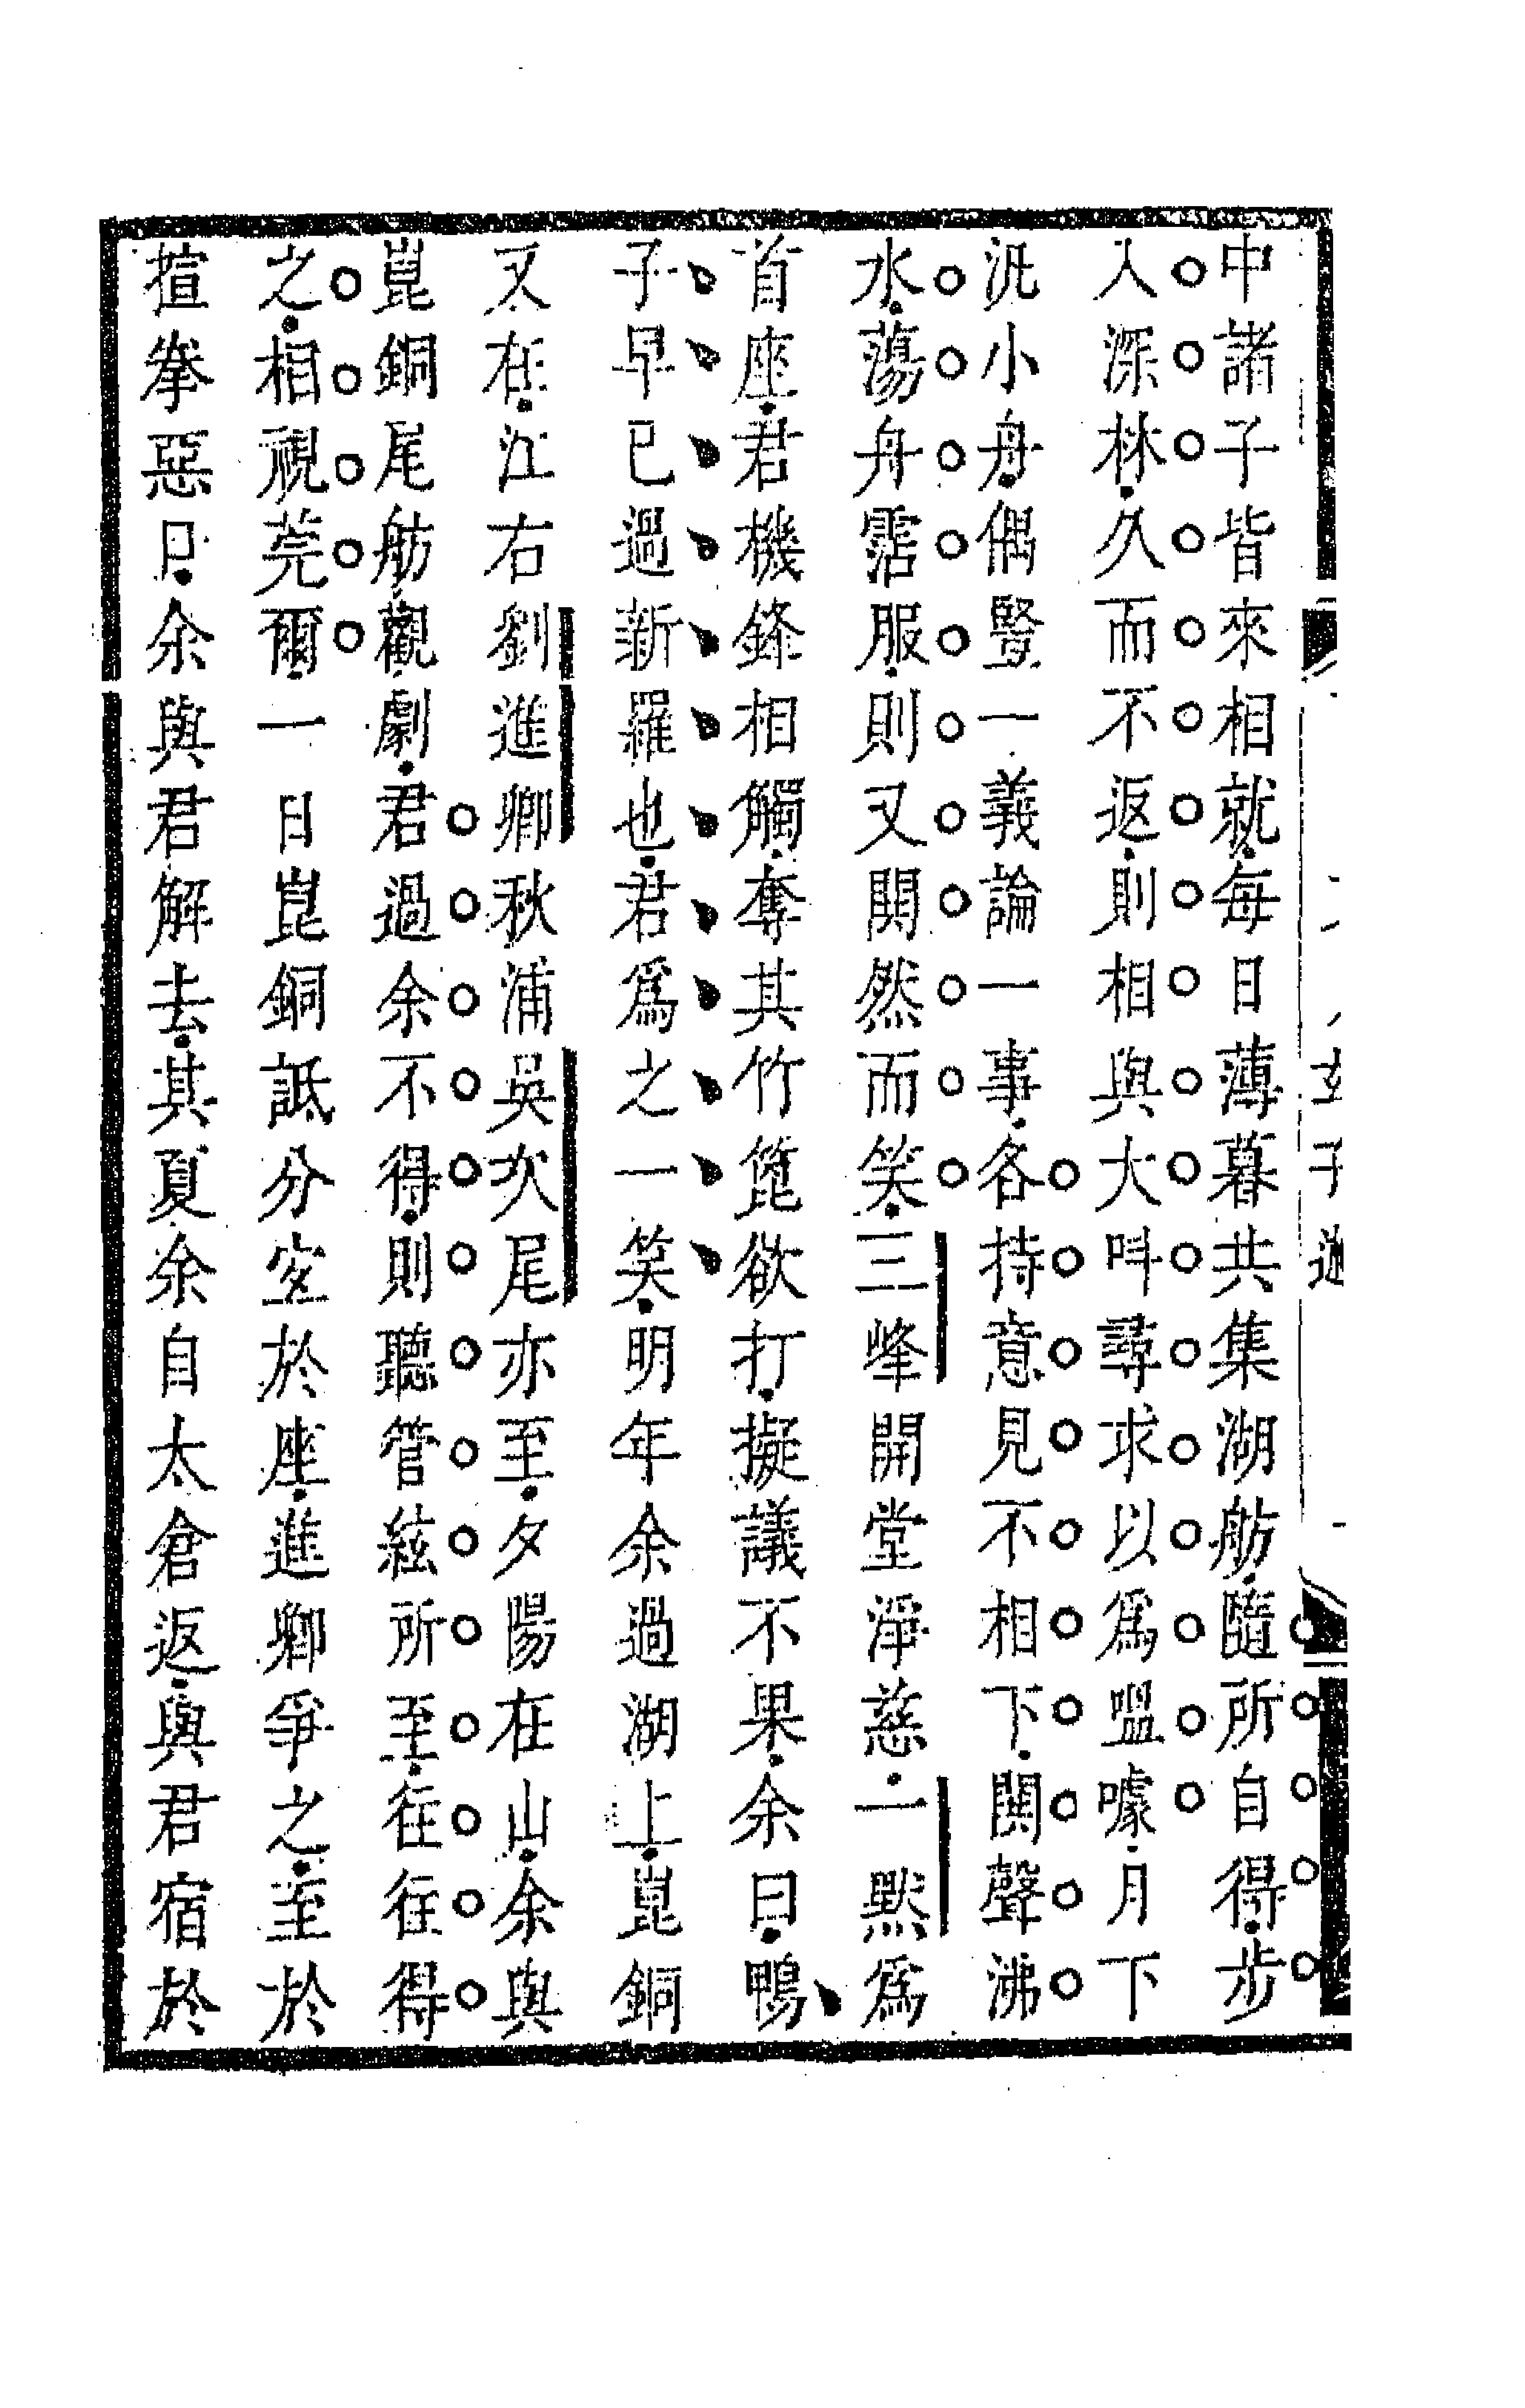 中諸子皆來相就每日薄暮共集湖舫隨所自得步
入深林久而不返則相與大呌尋求以爲嗢噱月下
汎小舟偶豎一義論一事各持意見不相下鬨聲沸
水蕩舟霑服則又閧然而笑三峰開堂淨慈一默爲
首座君機鋒相觸奪其竹篦欲打擬議不果余曰鴨
子早已過新羅也君爲之一笑明年余過湖上崑銅
又在江右劉進卿秋浦吳次尾亦至夕陽在山余與
崑銅尾舫觀劇君過余不得則聽管絃所至往往得
之相視莞爾一日崑銅詆分宐於座進卿爭之至於
揎拳惡口余與君解去其夏余自太倉返與君宿於